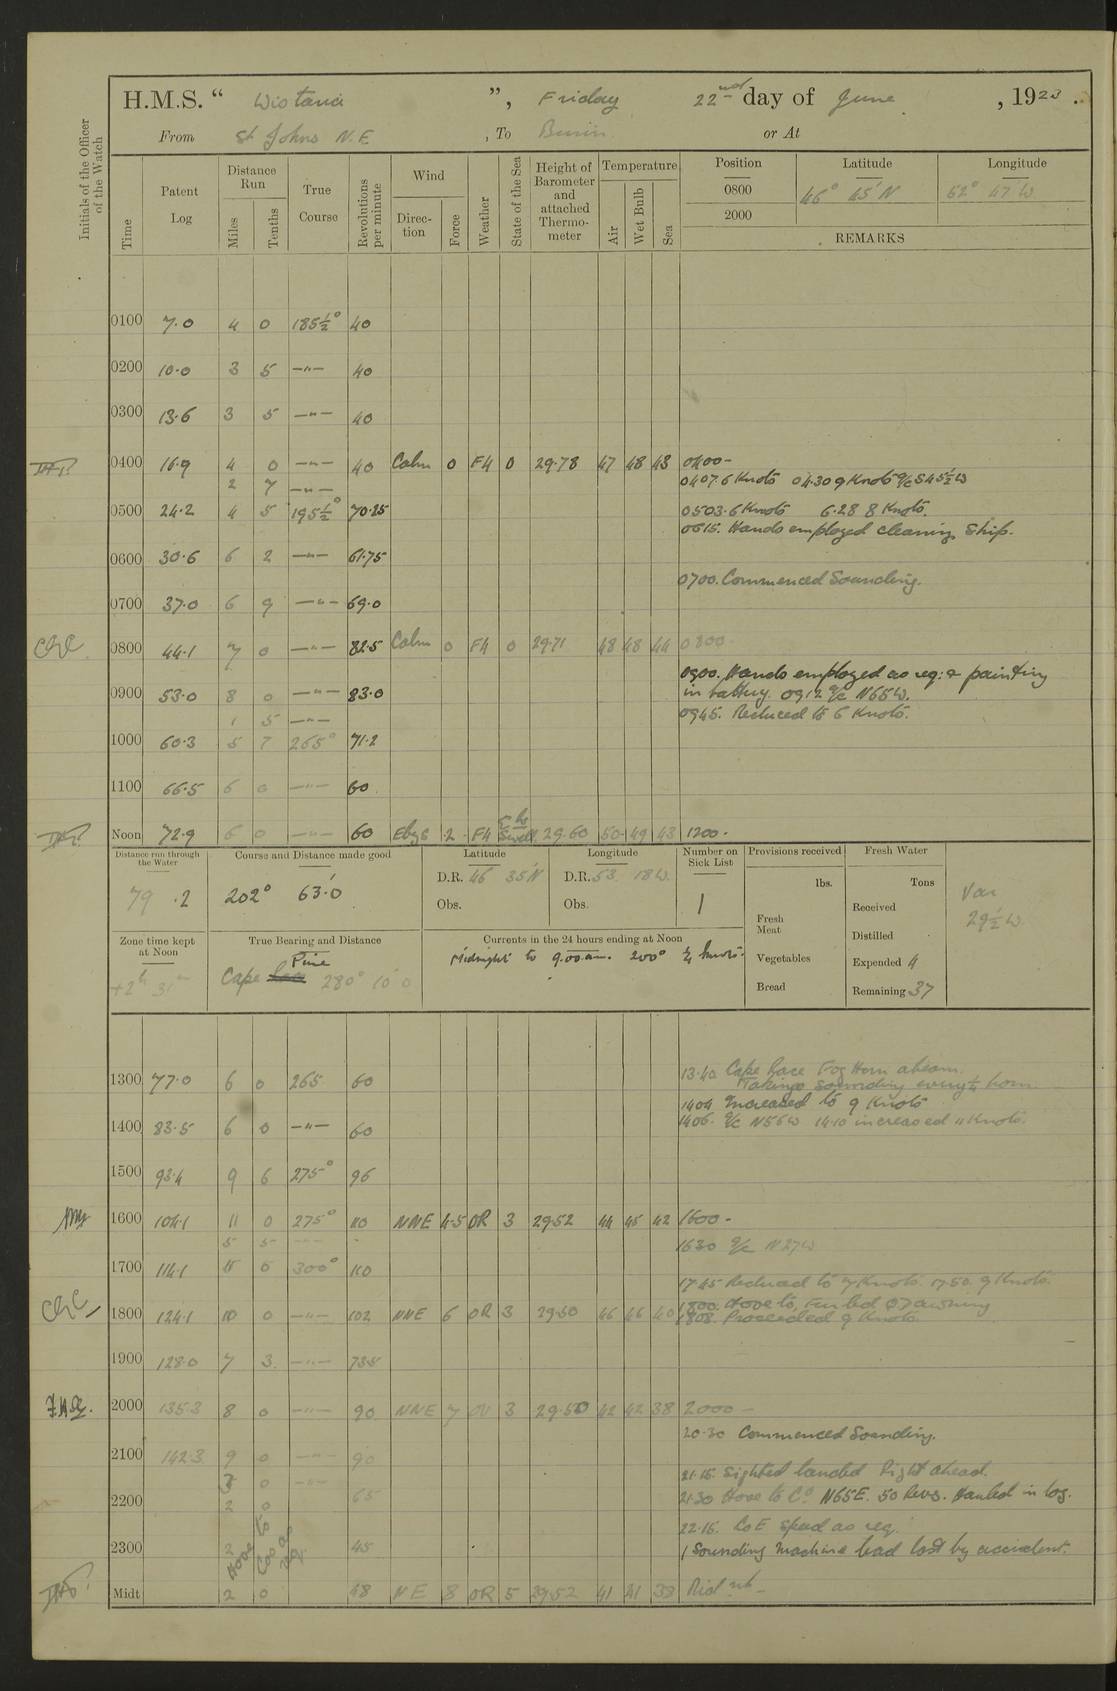 H.M.S. “ Wistaria ”, Friday 22nd day of June, 1923.
From St Johns N.F. , To Burin or At
Initials of the Officer of the Watch
Time
Patent Log
Distance Run
Miles
Tenths
True Course
Revolutions per minute
Wind
Direction
Force
Weather
State of the Sea
Height of Barometer and attached Thermometer
Temperature
Air
Wet Bulb
Sea
Position Latitude Longitude
0800 46° 45' N 52° 47' W
2000
REMARKS
0100 7.0 4 0 185½° 40
0200 10.0 3 5 —"— 40
0300 13.6 3 5 —"— 40
0400 16.9 4 0 —"— 40 Calm 0 F4 0 29.78 47 48 43 0400-
2 7 —"— 0407.6 Knots 04.30 9 Knots a/c S45½W
0500 24.2 4 5 195½° 70.25 0503.6 Knots 6.28 8 Knots.
0615. Hands employed cleaning ship.
0600 30.6 6 2 —"— 61.75
0700. Commenced Sounding.
0700 37.0 6 9 —"— 69.0
0800 44.1 7 0 —"— 82.5 Calm 0 F4 0 29.71 48 48 44 0800-
0900. Hands employed as req: & painting
in battery. 0912 a/c N65W.
0900 53.0 8 0 —"— 83.0
1 5 —"— 0945. Reduced to 6 Knots.
1000 60.3 5 7 265° 71.2
1100 66.5 6 0 —"— 60
Noon 72.9 6 0 —"— 60 2 F4 Swell 29.60 50 49 43 1200-
Distance run through the Water
79 .2
Course and Distance made good
202° 63'.0
Latitude
D.R. 46 35'N
Obs.
Longitude
D.R. 53 18W.
Obs.
Number on Sick List
1
Provisions received
lbs.
Fresh Meat
Vegetables
Bread
Fresh Water
Tons
Received
Distilled
Expended 4
Remaining 37
Var
29½ W.
Zone time kept at Noon
+2h 31m
True Bearing and Distance
Cape Pine 280° 10'.0
Currents in the 24 hours ending at Noon
Midnight to 9.00 am. 200° ¼ knots.
1300 77.0 6 0 265 60 13.40 Cape Race Fog Horn abeam.
Taking sounding every ¼ hour
1404 Increased to 9 Knots
1400 83.5 6 0 —"— 60 1406. a/c N56W 14.10 increased 11 Knots.
1500 93.4 9 6 275° 96
1600 104.1 11 0 275° 110 NNE 4-5 OR 3 29.52 44 45 42 1600-
5 5 —"— 1630 a/c N27W
1700 114.1 5 5 300° 110
1745 Reduced to 7 Knots. 17.50. 9 Knots.
1800. Hove to, Furled awning
1800 124.1 10 0 —"— 102 NNE 6 OR 3 29.50 46 46 40 1808. Proceeded 9 Knots.
1900 128.0 7 3 —"— 73.5
2000 135.3 8 0 —"— 90 NNE 7 3 29.50 42 42 38 2000-
20.30 Commenced Sounding.
2100 142.3 9 0 —"— 90
3 0 —"— 21.15. Sighted landed Right ahead.
2200 2 0 65 21.30 Hove to Co N65E. 50 Revs. Hauled in log.
22.15. Co E speed as req.
2300 2 Hove to Co as req. 45 1 Sounding Machine lead lost by accident.
Midt 2 0 48 NE 8 OR 5 29.52 41 41 39